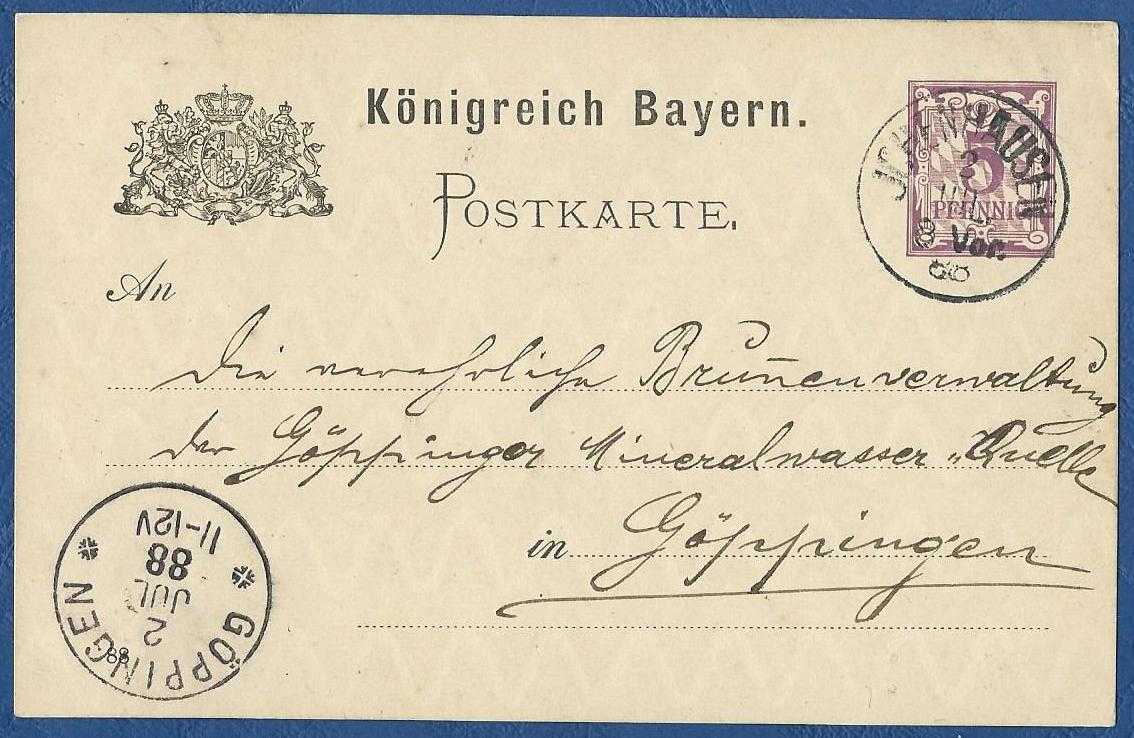 Königreich Bayern.
POSTKARTE.
5
PFENNIG
ICHENHAUSEN
2
JUL
Vor.
88
An
die verehrliche Brun̄enverwaltung
der Göppinger Mineralwasser „Quelle
in Göppingen
GÖPPINGEN
2
JUL
88
11-12V
88